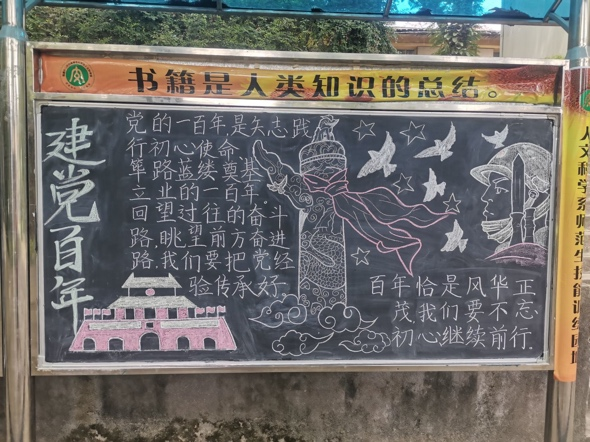 书籍是人类知识的总结。
建党百年
党的一百年,是矢志践
行初心使命
筚路蓝缕奠基
立业的一百年。
回望过往的奋斗
路,眺望前方奋进
路,我们要把党经
验传承好
百年恰是风华正
茂我们要不忘
初心继续前行.
人文科学系师范生技能训练园地